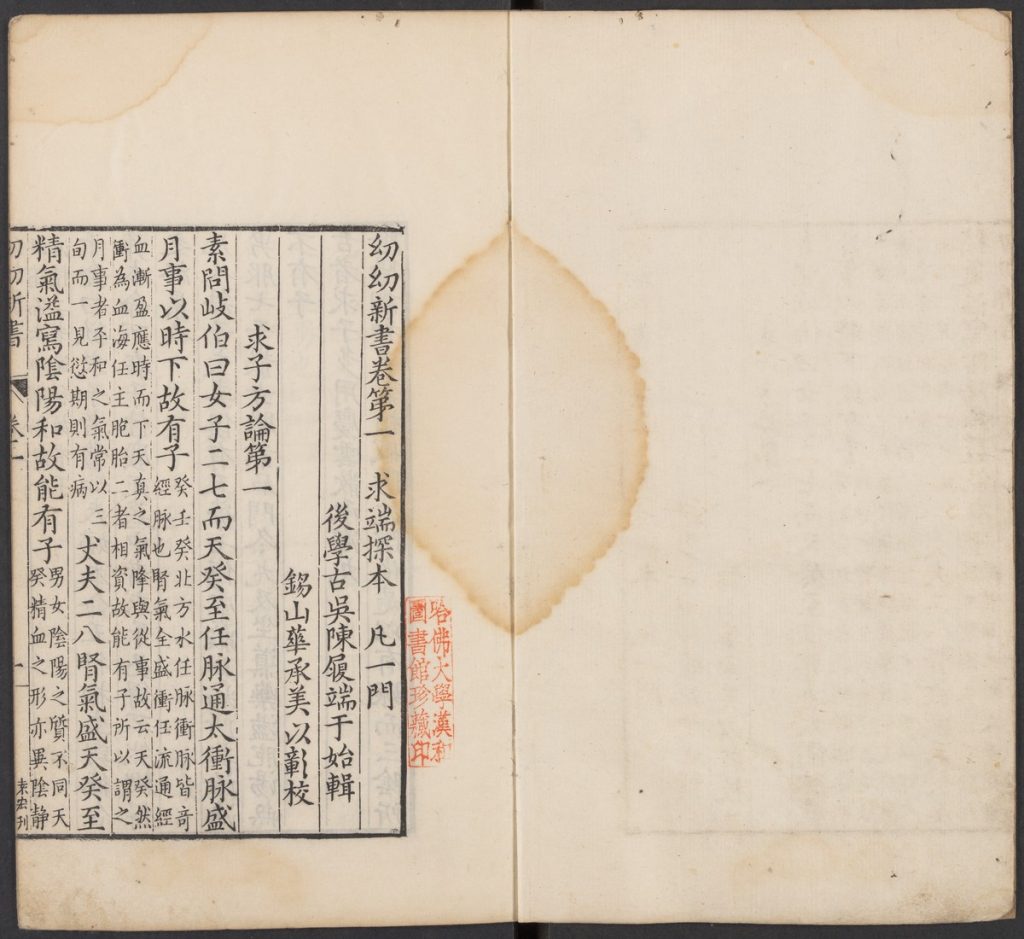 幼幼新書卷第一 求端探本 凡一門
後學古吳陳履端于始輯
錫山華承美以彰校
求子方論第一
素問岐伯曰女子二七而天癸至任脉通太衝脉盛
月事以時下故有子
癸壬癸北方水任脉衝脉皆竒
經脉也腎氣全盛衝任流通經
血漸盈應時而下天真之氣降與從事故云天癸然
衝為血海任主胞胎二者相資故能有子所以謂之
月事者平和之氣常以三
旬而一見愆期則有病
丈夫二八腎氣盛天癸至
精氣溢寫陰陽和故能有子
男女陰陽之質不同天
癸精血之形亦異陰静
幼幼新書
卷一
一
哈佛大學漢和
圖書館珍藏印